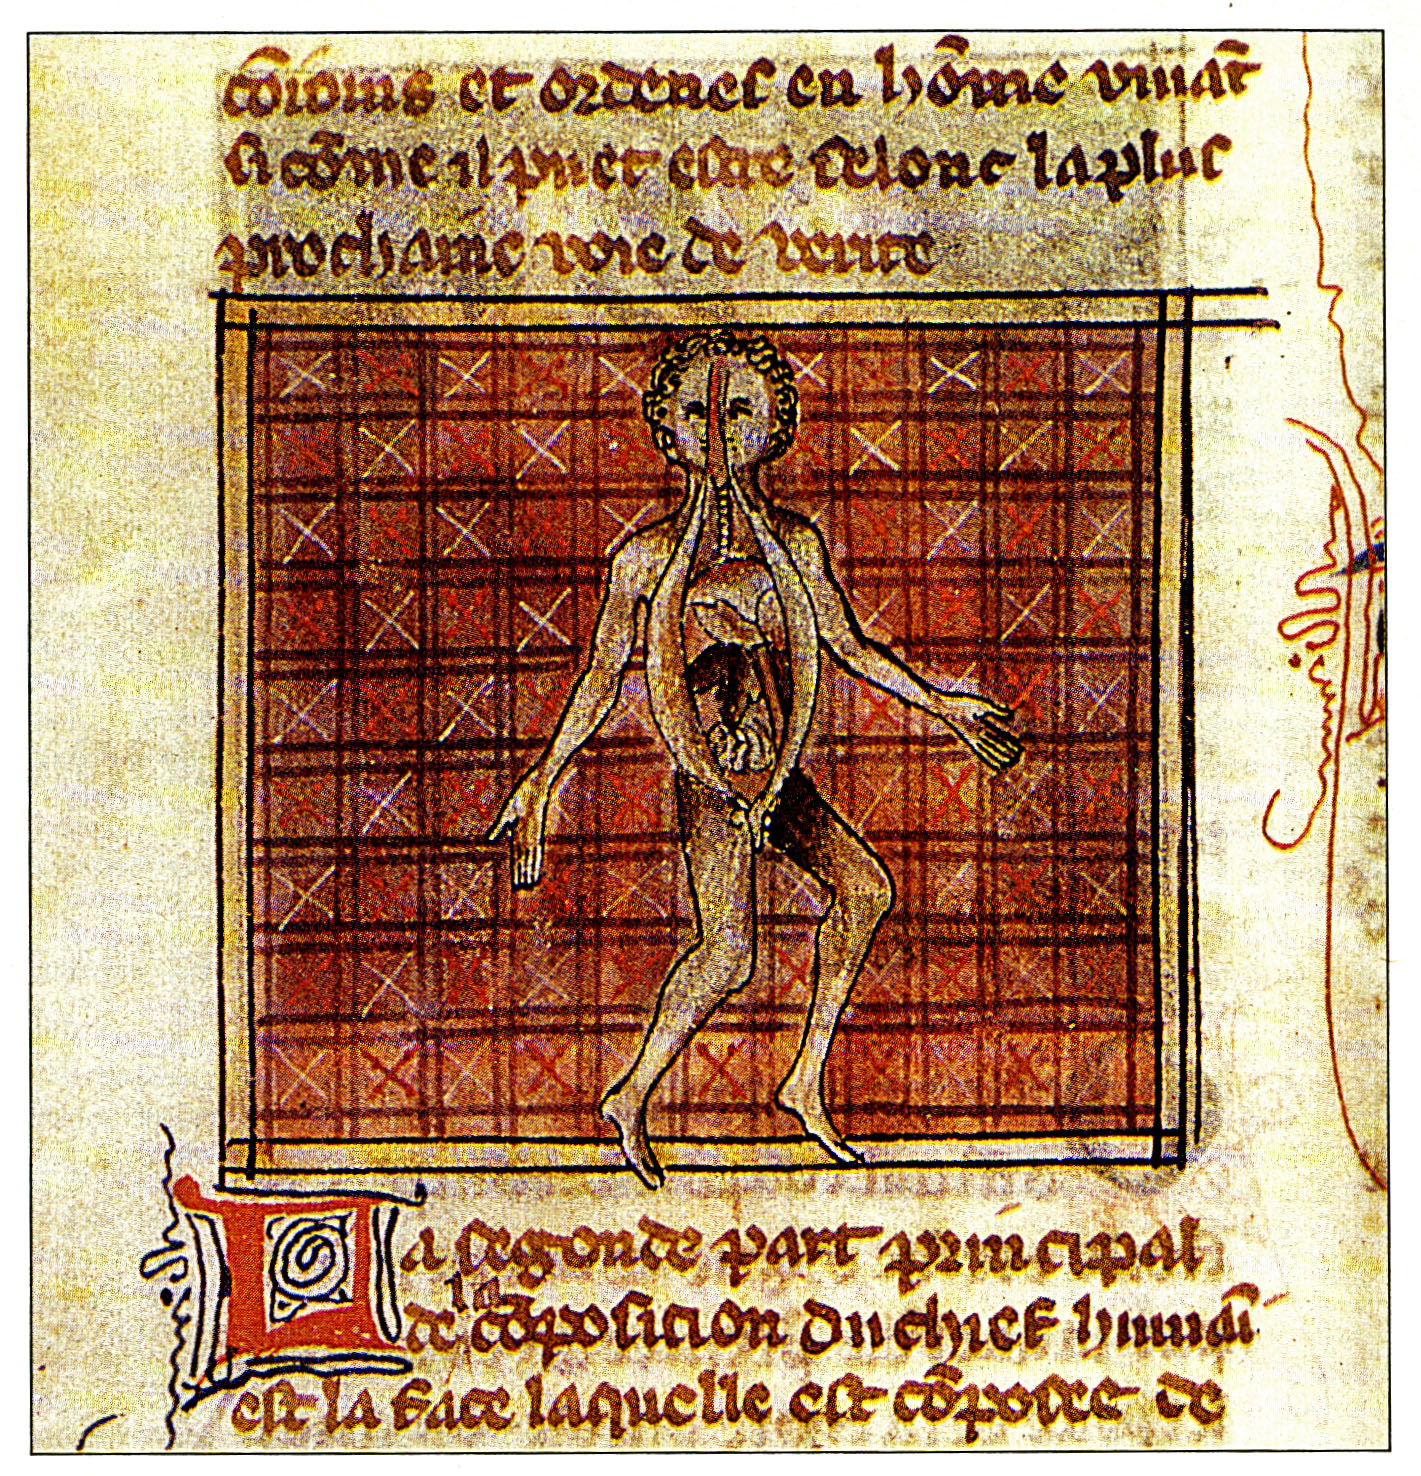 cōioins et ordenes en hōme viuāt
si cōme il puet estre selonc la plus
prochaine voie de verite
La segonde part principal
de la cōposicion du chief humāī
est la face laquelle est cōposee de